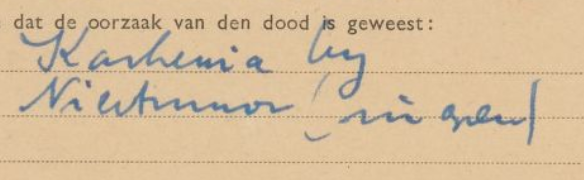 dat de oorzaak van den dood is geweest:
Kachexia by
Niertumor